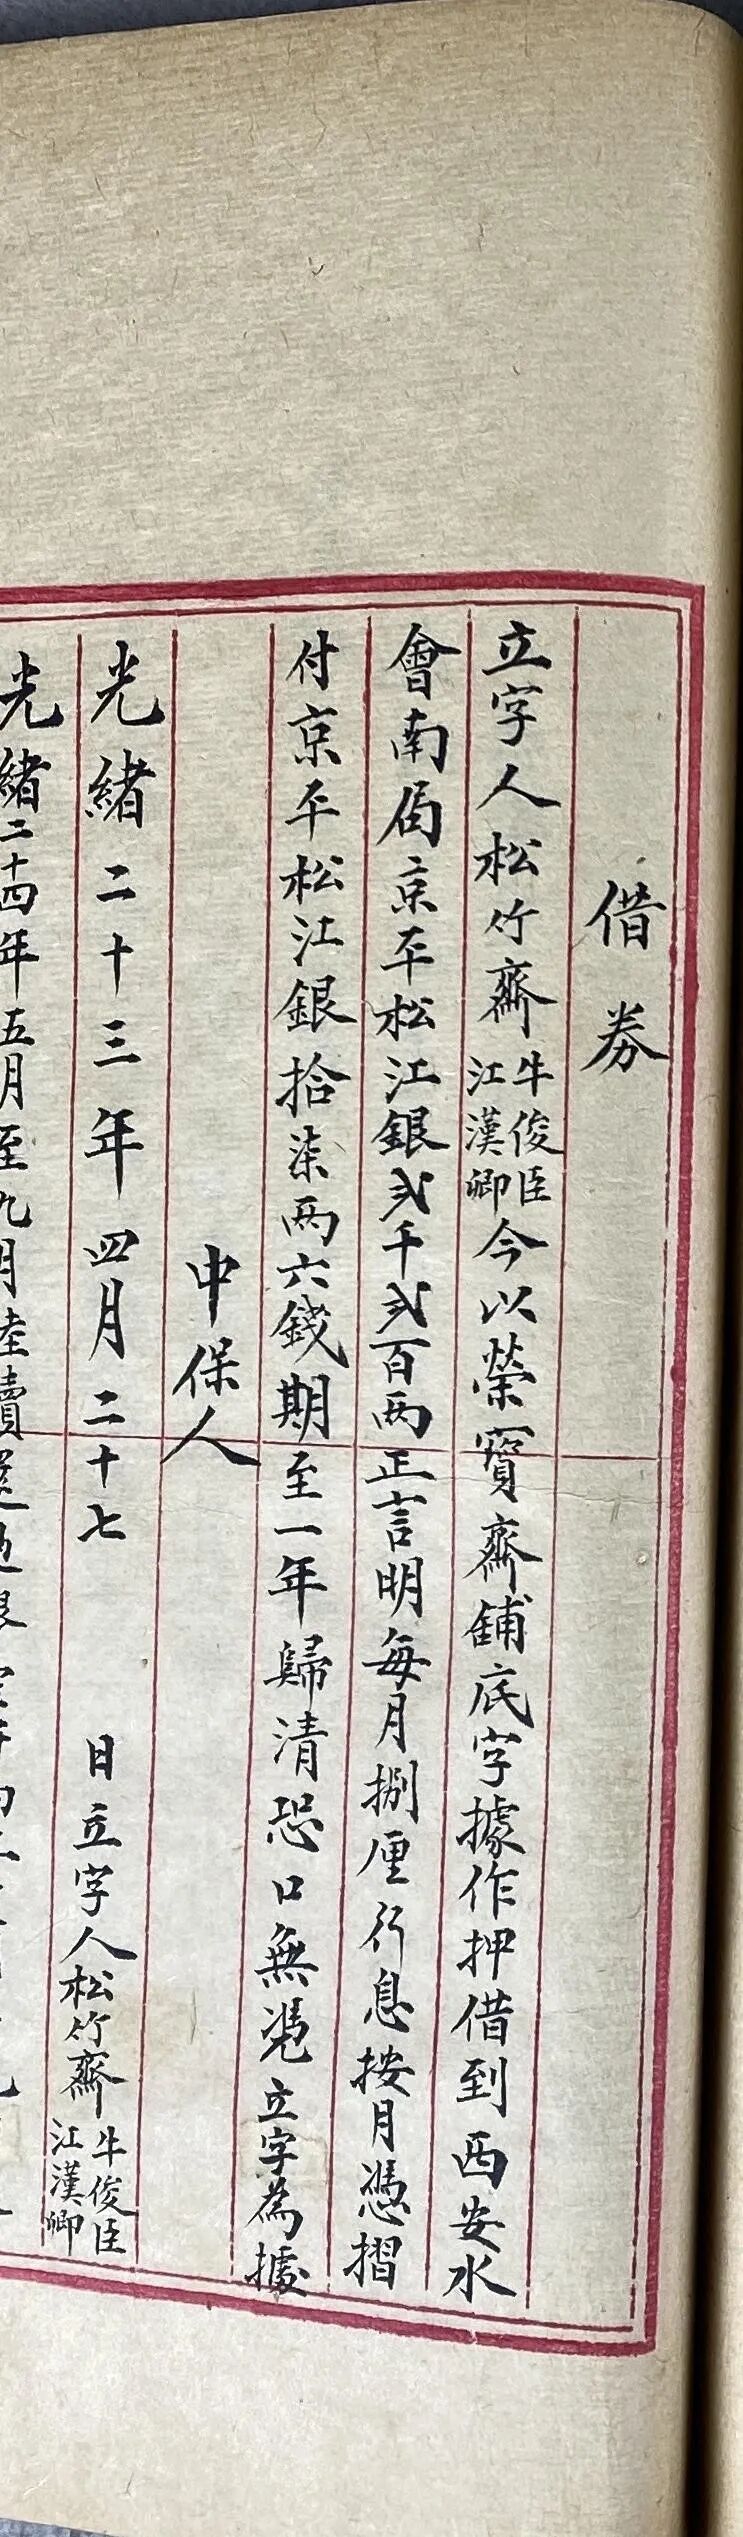 借券
立字人松竹齋牛俊臣江漢卿今以榮寳齋舖底字據作押借到西安水
會南局京平松江銀貳千貳百两正言明每月捌厘行息按月憑摺
付京平松江銀拾柒两六錢期至一年歸清恐口無凴立字為據
中保人
光緒二十三年四月二十七日立字人松竹齋牛俊臣江漢卿
光緒二十四年五月至九月陸續